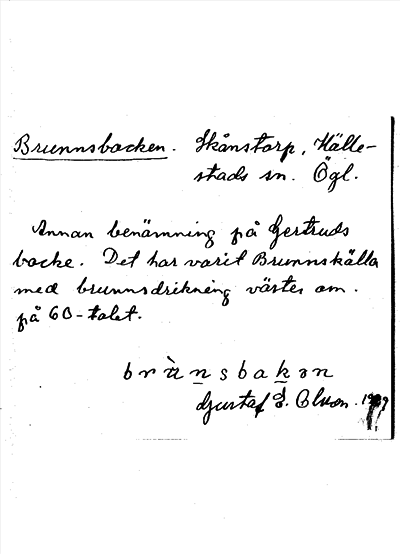 Brunnsbacken. Skånstorp, Hälle-
stads sn. Ögl.
Annan benämning på Gertruds
backe. Det har varit Brunnskälla
med brunnsdrikning väster om.
på 60-talet.
brùnsbakən
Gustaf E. Olson.